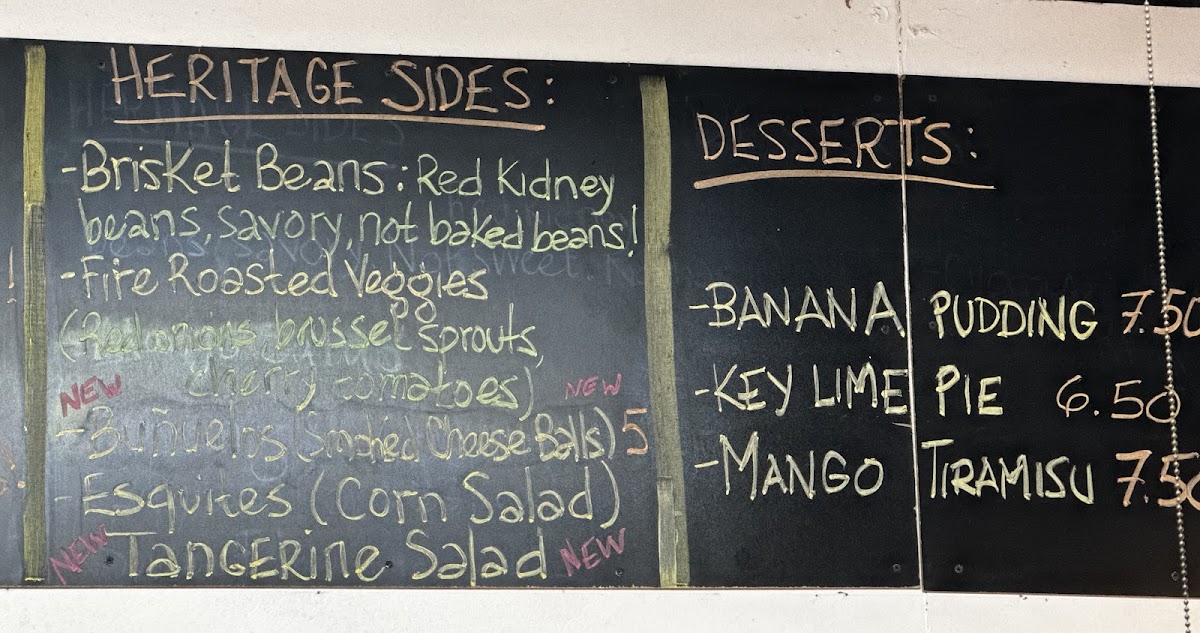 HERITAGE SIDES:
-Brisket Beans: Red Kidney
beans, savory, not baked beans!
-Fire Roasted Veggies
(Red onions, brussel sprouts,
NEW cherry tomatoes) NEW
-Buñuelos (Smoked Cheese Balls) 5
-Esquites (Corn Salad)
NEW TANGERINE Salad NEW
DESSERTS:
-BANANA PUDDING 7.50
-KEY LIME PIE 6.50
-MANGO TIRAMISU 7.50